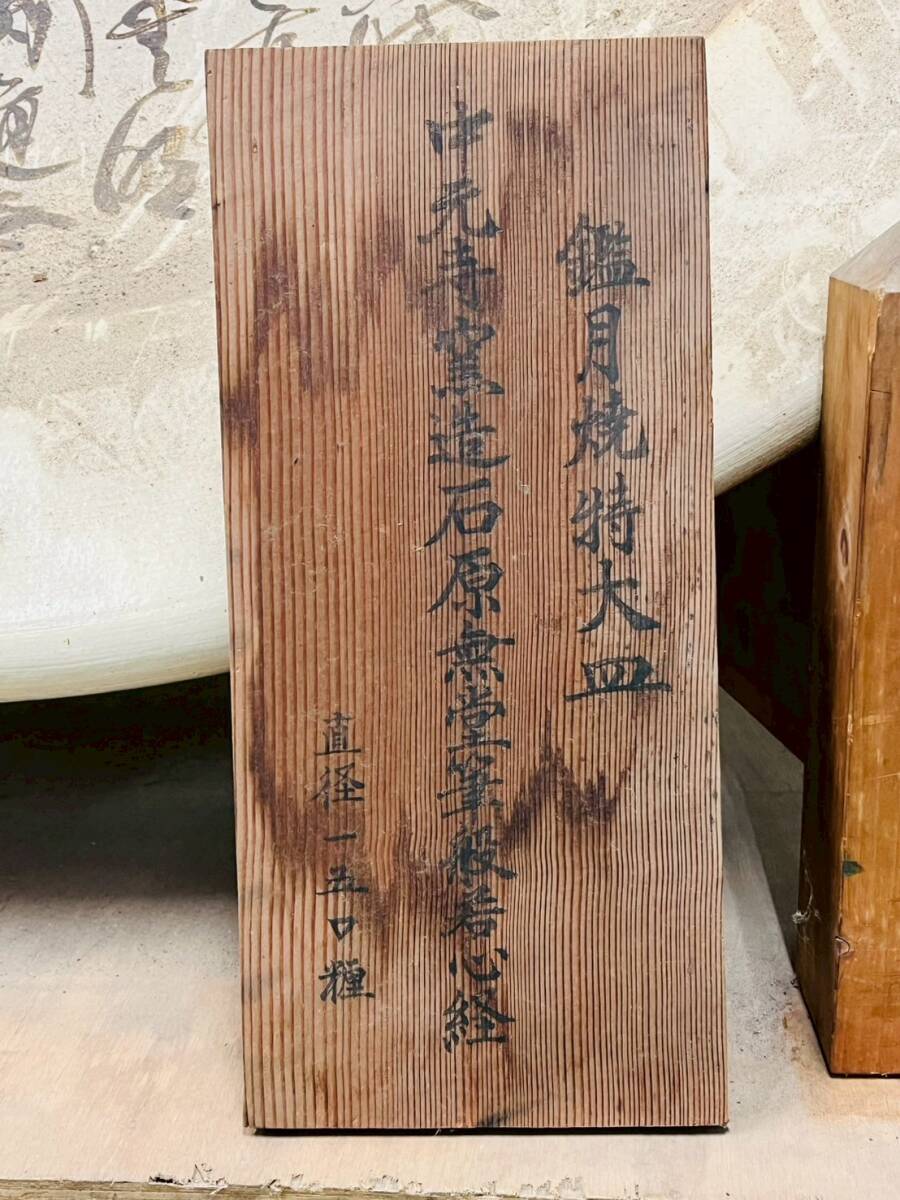 鑑月焼特大皿
中元寺窯造石原無堂筆般若心経
直径一五〇糎